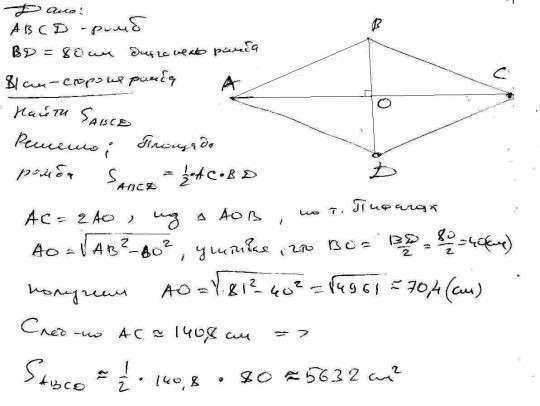 Дано:
ABCD - ромб
BD = 80 см диагональ ромба
81 см - сторона ромба
Найти S_ABCD
Решение: Площадь
ромба S_ABCD = 1/2 · AC · BD
A
B
C
D
O
AC = 2AO, из △ AOB, по т. Пифагора
AO = √(AB² - BO²), учитывая, что BO = BD/2 = 80/2 = 40 (см)
получим AO = √(81² - 40²) = √4961 ≈ 70,4 (см)
След-но AC ≈ 140,8 см =>
S_ABCD ≈ 1/2 · 140,8 · 80 ≈ 5632 см²